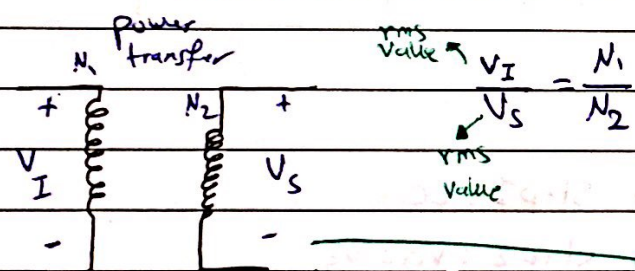 power
transfer
N₁
N₂
+
+
V_I
V_S
-
-
rms
value
V_I / V_S = N₁ / N₂
rms
value